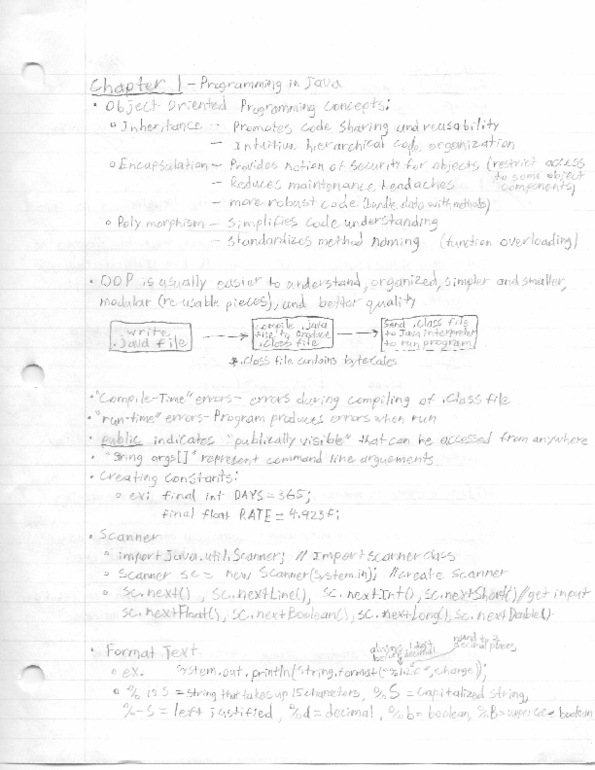 Chapter 1 - Programming in Java
• Object Oriented Programming Concepts:
o Inheritance - Promotes code sharing and reusability
- Intuitive hierarchical code organization
o Encapsulation - Provides notion of security for objects (restrict access to some object components)
- Reduces maintenance headaches
- more robust code (bundle data with methods)
o Polymorphism - Simplifies code understanding
- Standardizes method naming (function overloading)
• OOP is usually easier to understand, organized, simpler and smaller,
modular (re-usable pieces), and better quality
write .java file → compile .java file to produce .class file → send .class file to Java interpreter to run program
* .class file contains bytecodes
• "Compile-Time" errors - errors during compiling of .class file
• "run-time" errors - Program produces errors when run
• public indicates "publically visible" that can be accessed from anywhere
• "String args[]" represent command line arguements
• Creating Constants:
o ex: final int DAYS = 365;
final float RATE = 4.923f;
• Scanner
o import Java.util.Scanner; // Import scanner class
o Scanner sc = new Scanner(System.in); //create scanner
o sc.next(), sc.nextLine(), sc.nextInt(), sc.nextShort() //get input
sc.nextFloat(), sc.nextBoolean(), sc.nextLong(), sc.nextDouble()
• Format Text
1 digit before decimal
round to 2 decimal places
o ex. System.out.println(String.format(", charge));
o %15S = String that takes up 15 characters, %S = Capitalized string,
%-S = left justified, %d = decimal, %b = boolean, %B = uppercase boolean